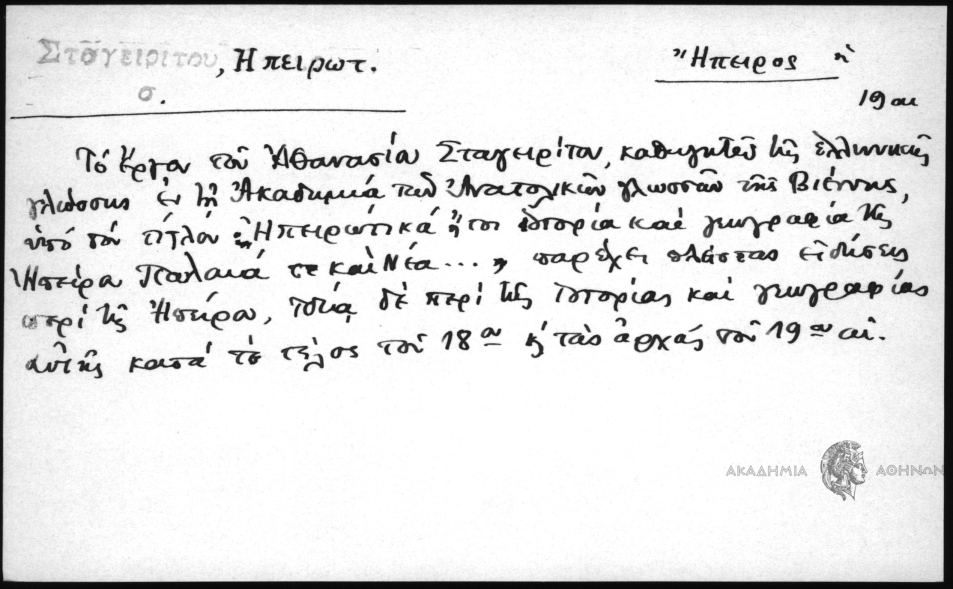 Σταγειρίτου, Ἠπειρωτ.
σ.
Ἤπειρος ἡ
19 αι
Τό ἔργον τοῦ Ἀθανασίου Σταγειρίτου, καθηγητοῦ τῆς ἑλληνικῆς
γλώσσης ἐν τῇ Ἀκαδημίᾳ τῶν Ἀνατολικῶν γλωσσῶν τῆς Βιέννης,
ὑπό τόν τίτλον „Ἠπειρωτικά ἤτοι ἱστορία καί γεωγραφία τῆς
Ἠπείρου Παλαιά τε καί Νέα...„ παρέχει πλείστας εἰδήσεις
περί τῆς Ἠπείρου, ἰδίᾳ δέ περί τῆς ἱστορίας καί γεωγραφίας
αὐτῆς κατά τό τέλος τοῦ 18ου ϗ τάς ἀρχάς τοῦ 19ου αἰ.
ΑΚΑΔΗΜΙΑ ΑΘΗΝΩΝ